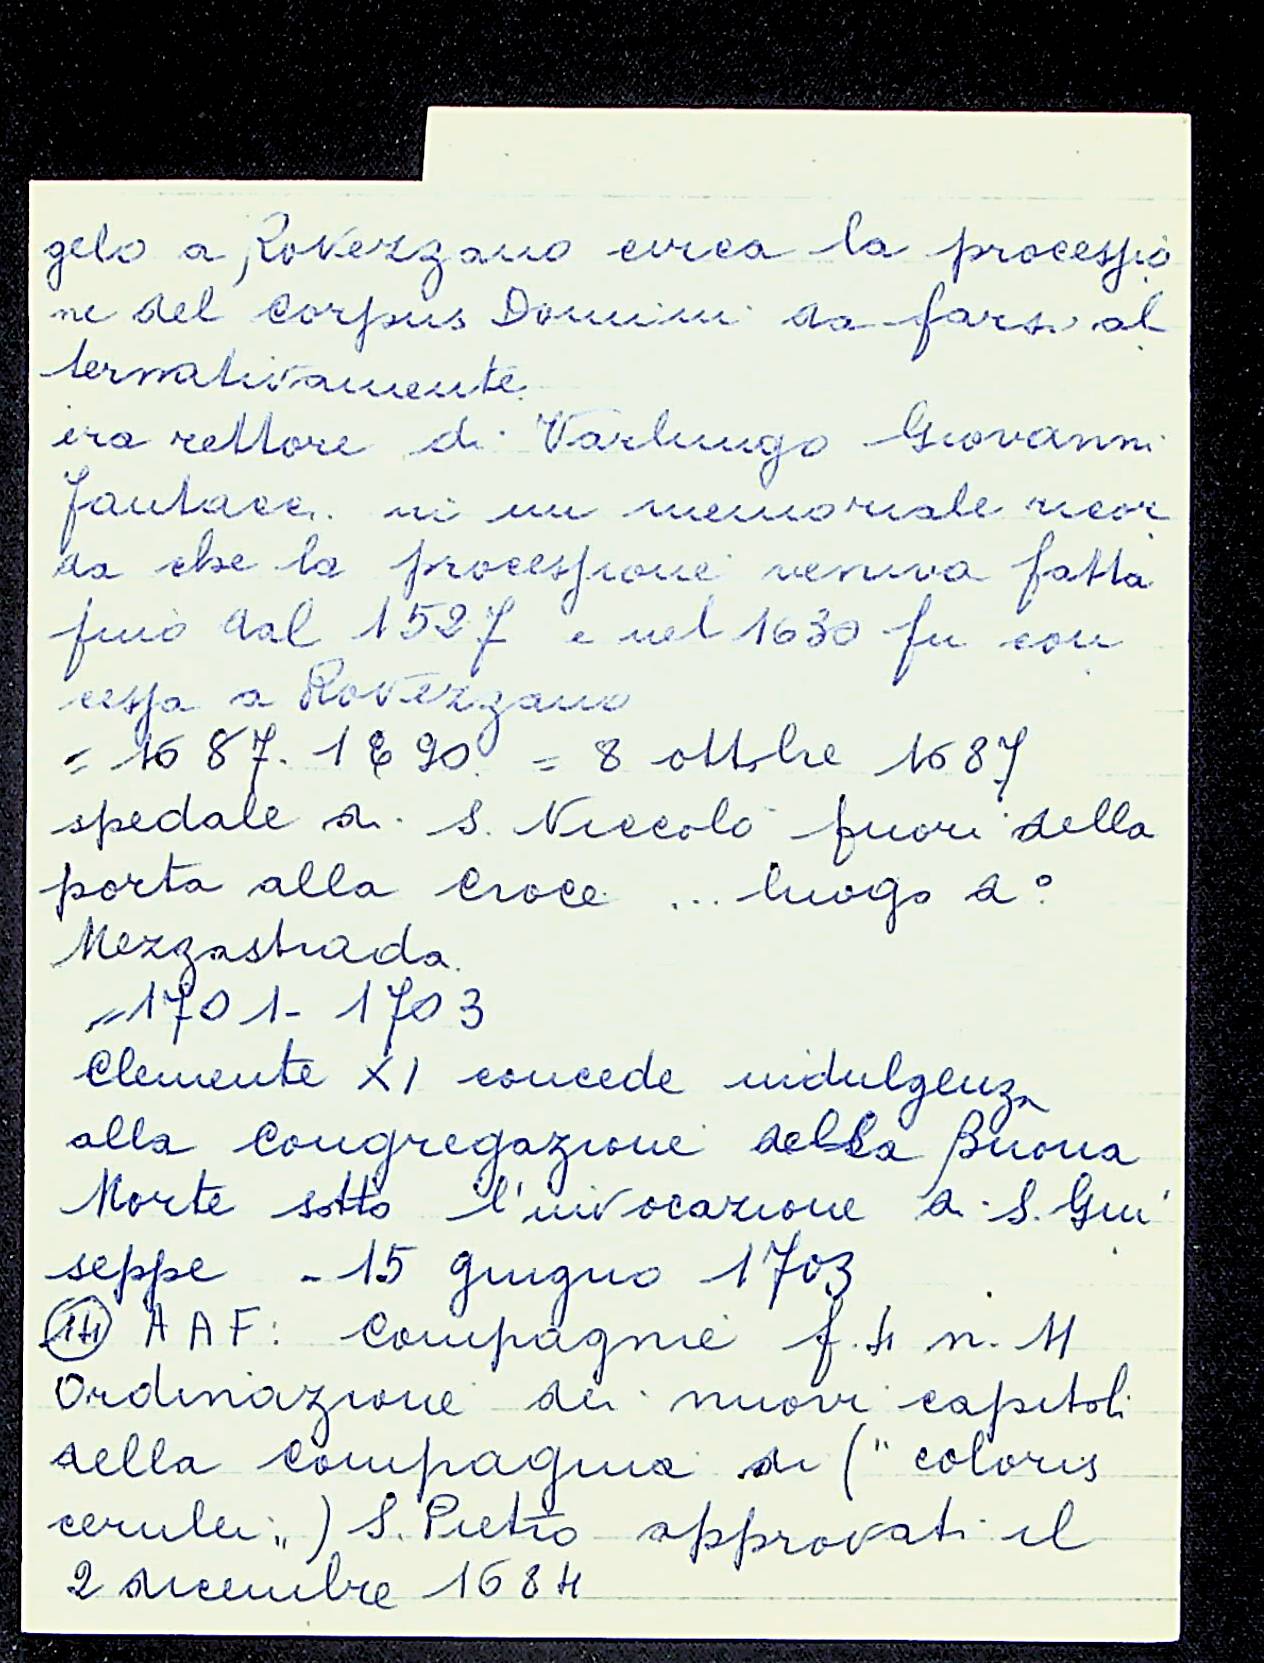 gelo a Rovezzano circa la processio
ne del Corpus Domini da farsi al
ternativamente.
era rettore di Varlungo Giovanni
Fantacci. in un memoriale ricor
da che la processione veniva fatta
fino dal 1527 e nel 1630 fu con
cessa a Rovezzano
= 1687. 1690. = 8 ottbre 1687
spedale di S. Niccolò fuori della
porta alla Croce ... luogo d°
Mezzastrada.
= 1701 - 1703
Clemente XI concede indulgenza
alla Congregazione della Buona
Morte sotto l'invocazione di S. Giu
seppe - 15 giugno 1703
14 AAF: Compagnie f. 4 n. 11
Ordinazione dei nuovi capitoli
della Compagnia di ("coloris
cerulei") S. Pietro approvati il
2 dicembre 1684